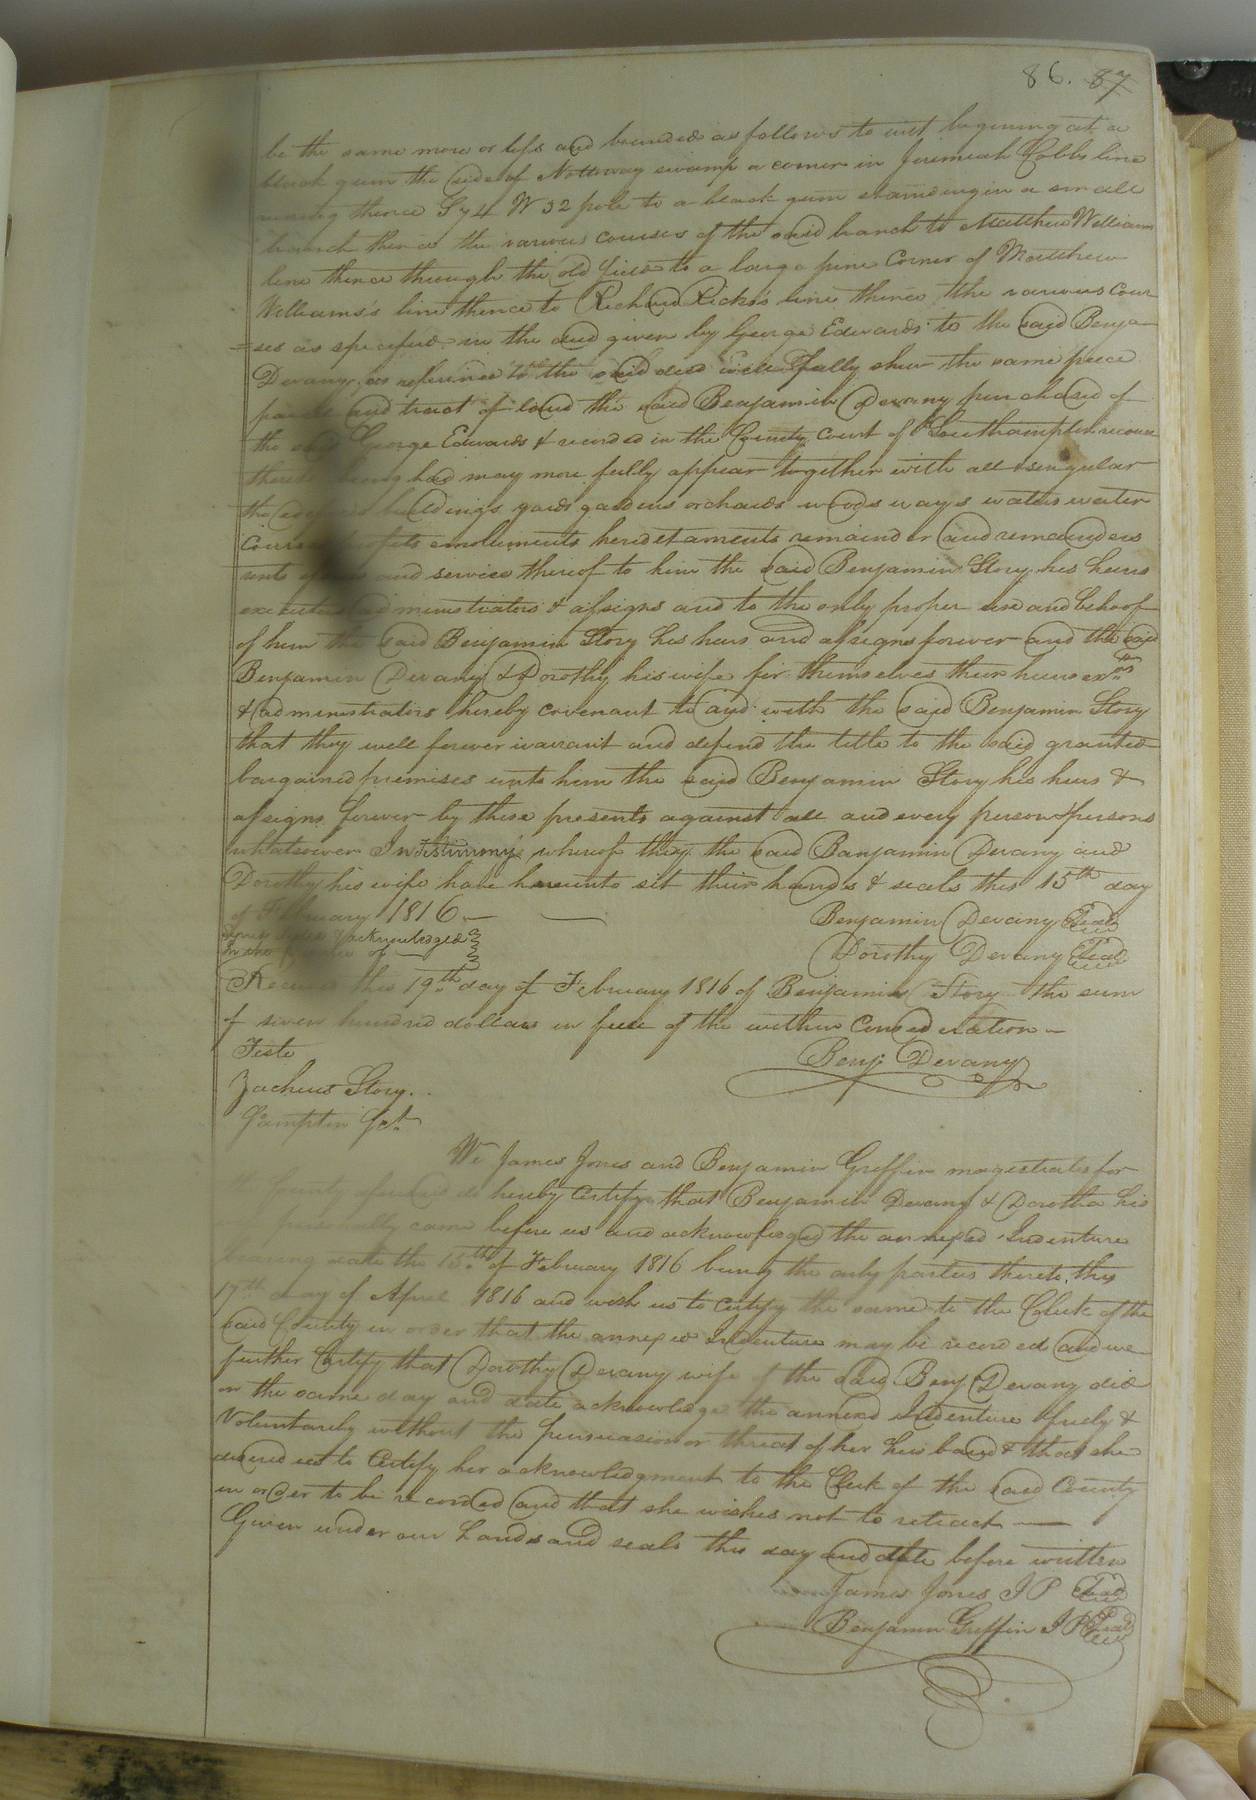 86. 87
be the same more or less and bounded as follows to wit begining at a
black gum the side of Nottoway swamp a corner in Jeremiah Cobbs line
runing thence S 74 W 32 pole to a black gum standing in a small
branch thence the various courses of the said branch to Matthew Williams
line thence through the old field to a large pine Corner of Matthew
Williams's line thence to Richard Ricks's line thence the various Cour
=ses as specified in the deed given by George Edwards to the said Benja
Devany, as reference to the said deed will fully shew the same piece
parcel and tract of land the said Benjamin Devany purchased of
the said George Edwards & recorded in the County Court of Southampton
thereto being had may more fully appear together with all & singular
the buildings yards gardens orchards woods ways waters water
Courses profits emoluments hereditaments remainder and remainders
rents and service thereof to him the said Benjamin Story his heirs
executors administrators & assigns and to the only proper use and behoof
of him the said Benjamin Story his heirs and assigns forever and the said
Benjamin Devany & Dorothy his wife for themselves their heirs exrs
& administrators hereby covenant to and with the said Benjamin Story
that they will forever warrant and defend the title to the said granted
bargained premises unto him the said Benjamin Story his heirs &
assigns forever by these presents against all and every person & persons
whatsoever In Testimony whereof they the said Banjamin Devany and
Dorothy his wife have hereunto set their hands & seals this 15th day
of February 1816 —
Benjamin Devany Seal
acknowledged
Dorothy Devany Seal
In the of
Received this 19th day of February 1816 of Benjamin Story the sum
of seven hundred dollars in full of the within Consideration —
Teste
Benj: Devany
Zacheus Story.
Sampton Sct.
We James Jones and Benjamin Griffin magistrates for
the County aforesaid do hereby Certify that Benjamin Devany & Dorotha his
personally came before us and acknowledged the annexed Indenture
bearing date the 15th of February 1816 being the only parties thereto, this
19th day of April 1816 and wish us to Certify the same to the Clerk of the
said County in order that the annexed Indenture may be recorded and we
further Certify that Dorothy Devany wife of the said Benj Devany did
on the same day and date acknowledge the annexed Indenture freely &
Voluntarily without the persuasion or threat of her husband & that she
desired us to Certify her acknowledgment to the Clerk of the said County
in order to be recorded and that she wishes not to retract —
Given under our hands and seals this day and date before written
James Jones J P Seal
Benjamin Griffin J P Seal